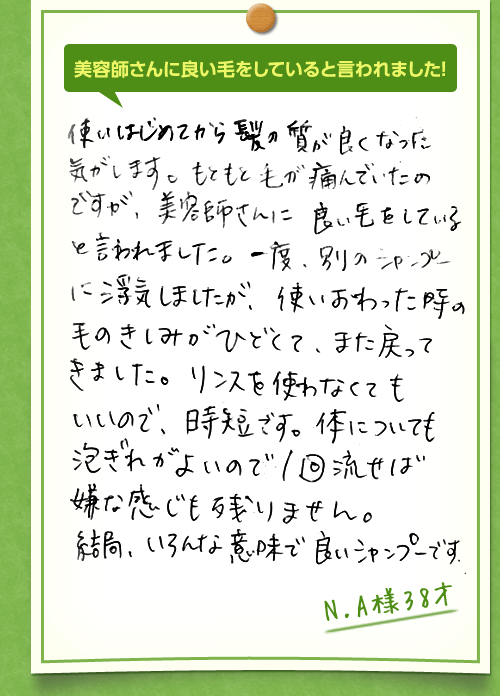 美容師さんに良い毛をしていると言われました!
使いはじめてから髪の質が良くなった
気がします。もともと毛が痛んでいたの
ですが、美容師さんに良い毛をしている
と言われました。一度、別のシャンプー
に浮気しましたが、使いおわった時の
毛のきしみがひどくて、また戻って
きました。リンスを使わなくても
いいので、時短です。体についても
泡ぎれがよいので1回流せば
嫌な感じも残りません。
結局、いろんな意味で良いシャンプーです.
N.A様38才